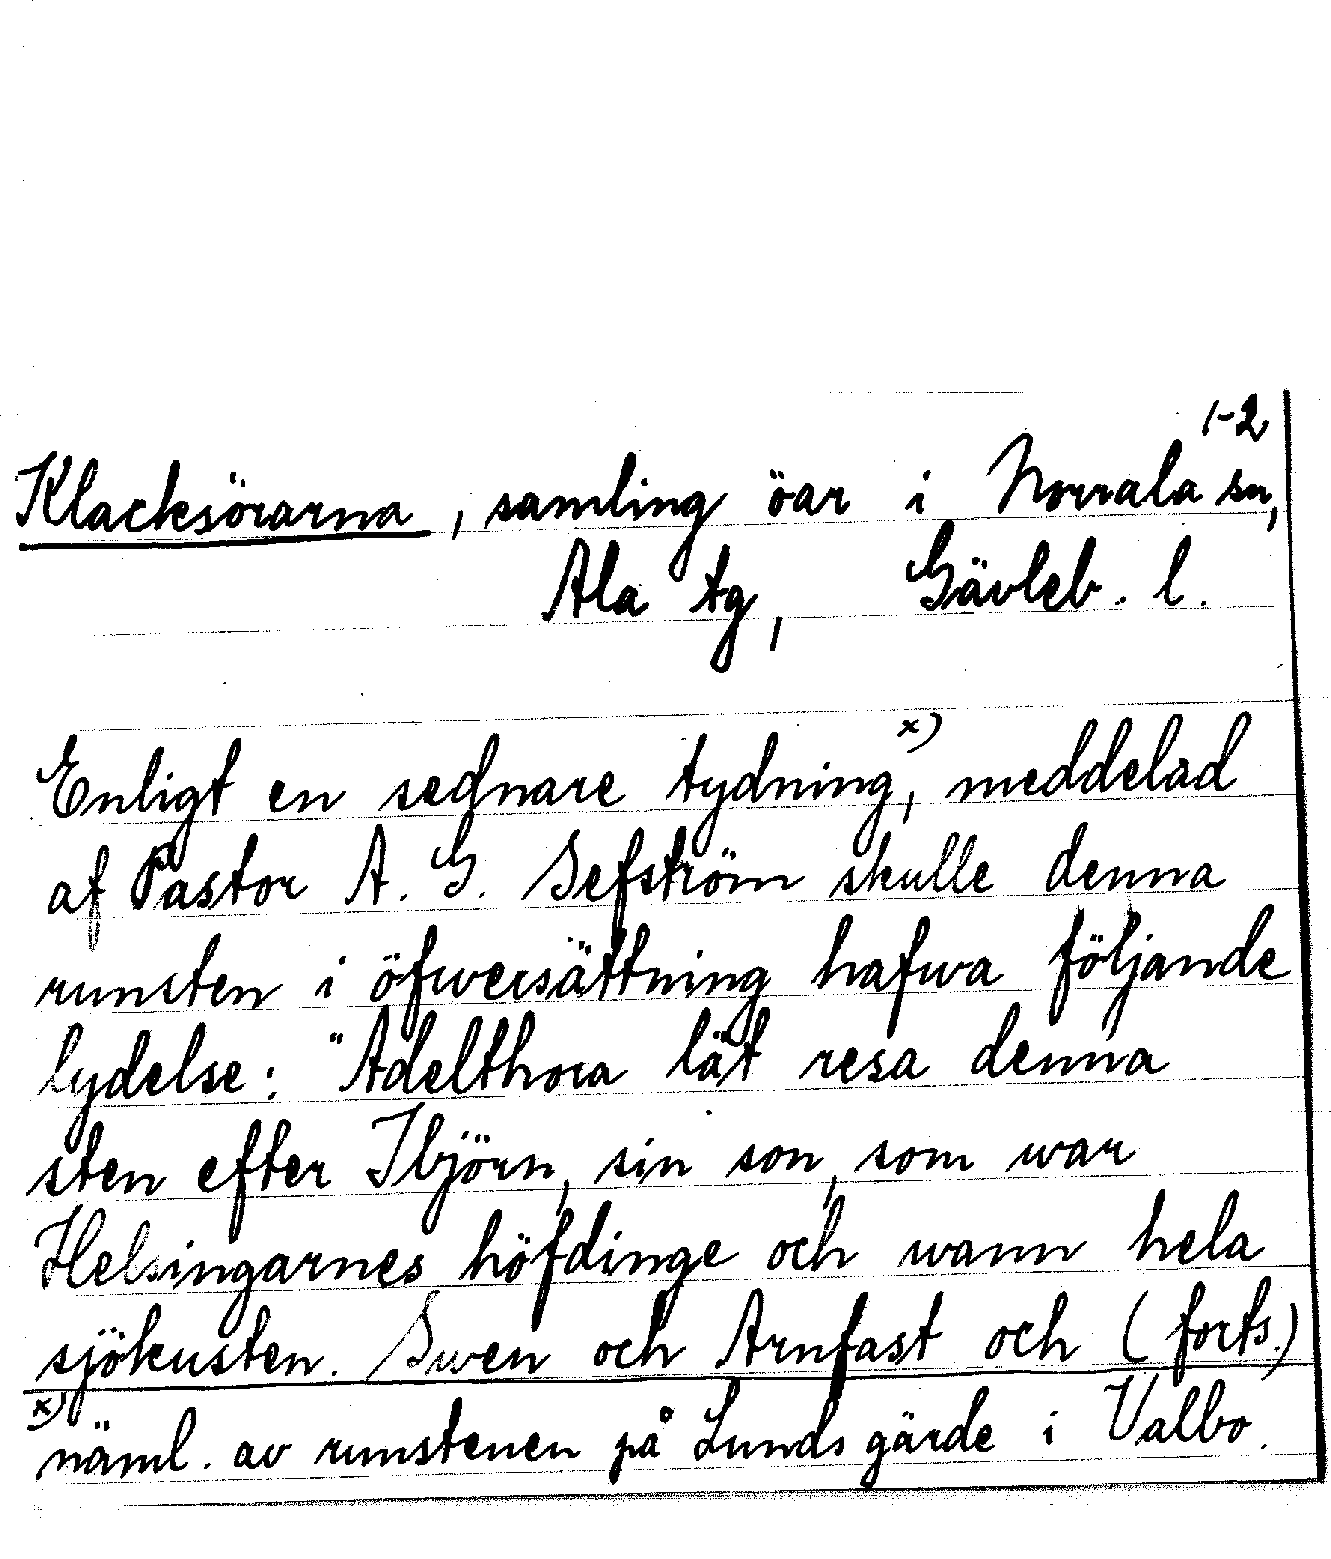 1-2
Klacksörarna, samling öar i Norrala sn,
Ala tg, Gävleb. l.
Enligt en sednare tydning,x) meddelad
af Pastor A. G. Sefström skulle denna
runsten i öfwersättning hafwa följande
lydelse: "Adelthora lät resa denna
sten efter Ibjörn, sin son, som war
Helsingarnes höfdinge och wann hela
sjökusten. Swen och Arnfast och (forts.)
x) näml. av runstenen på Lunds gärde i Valbo.